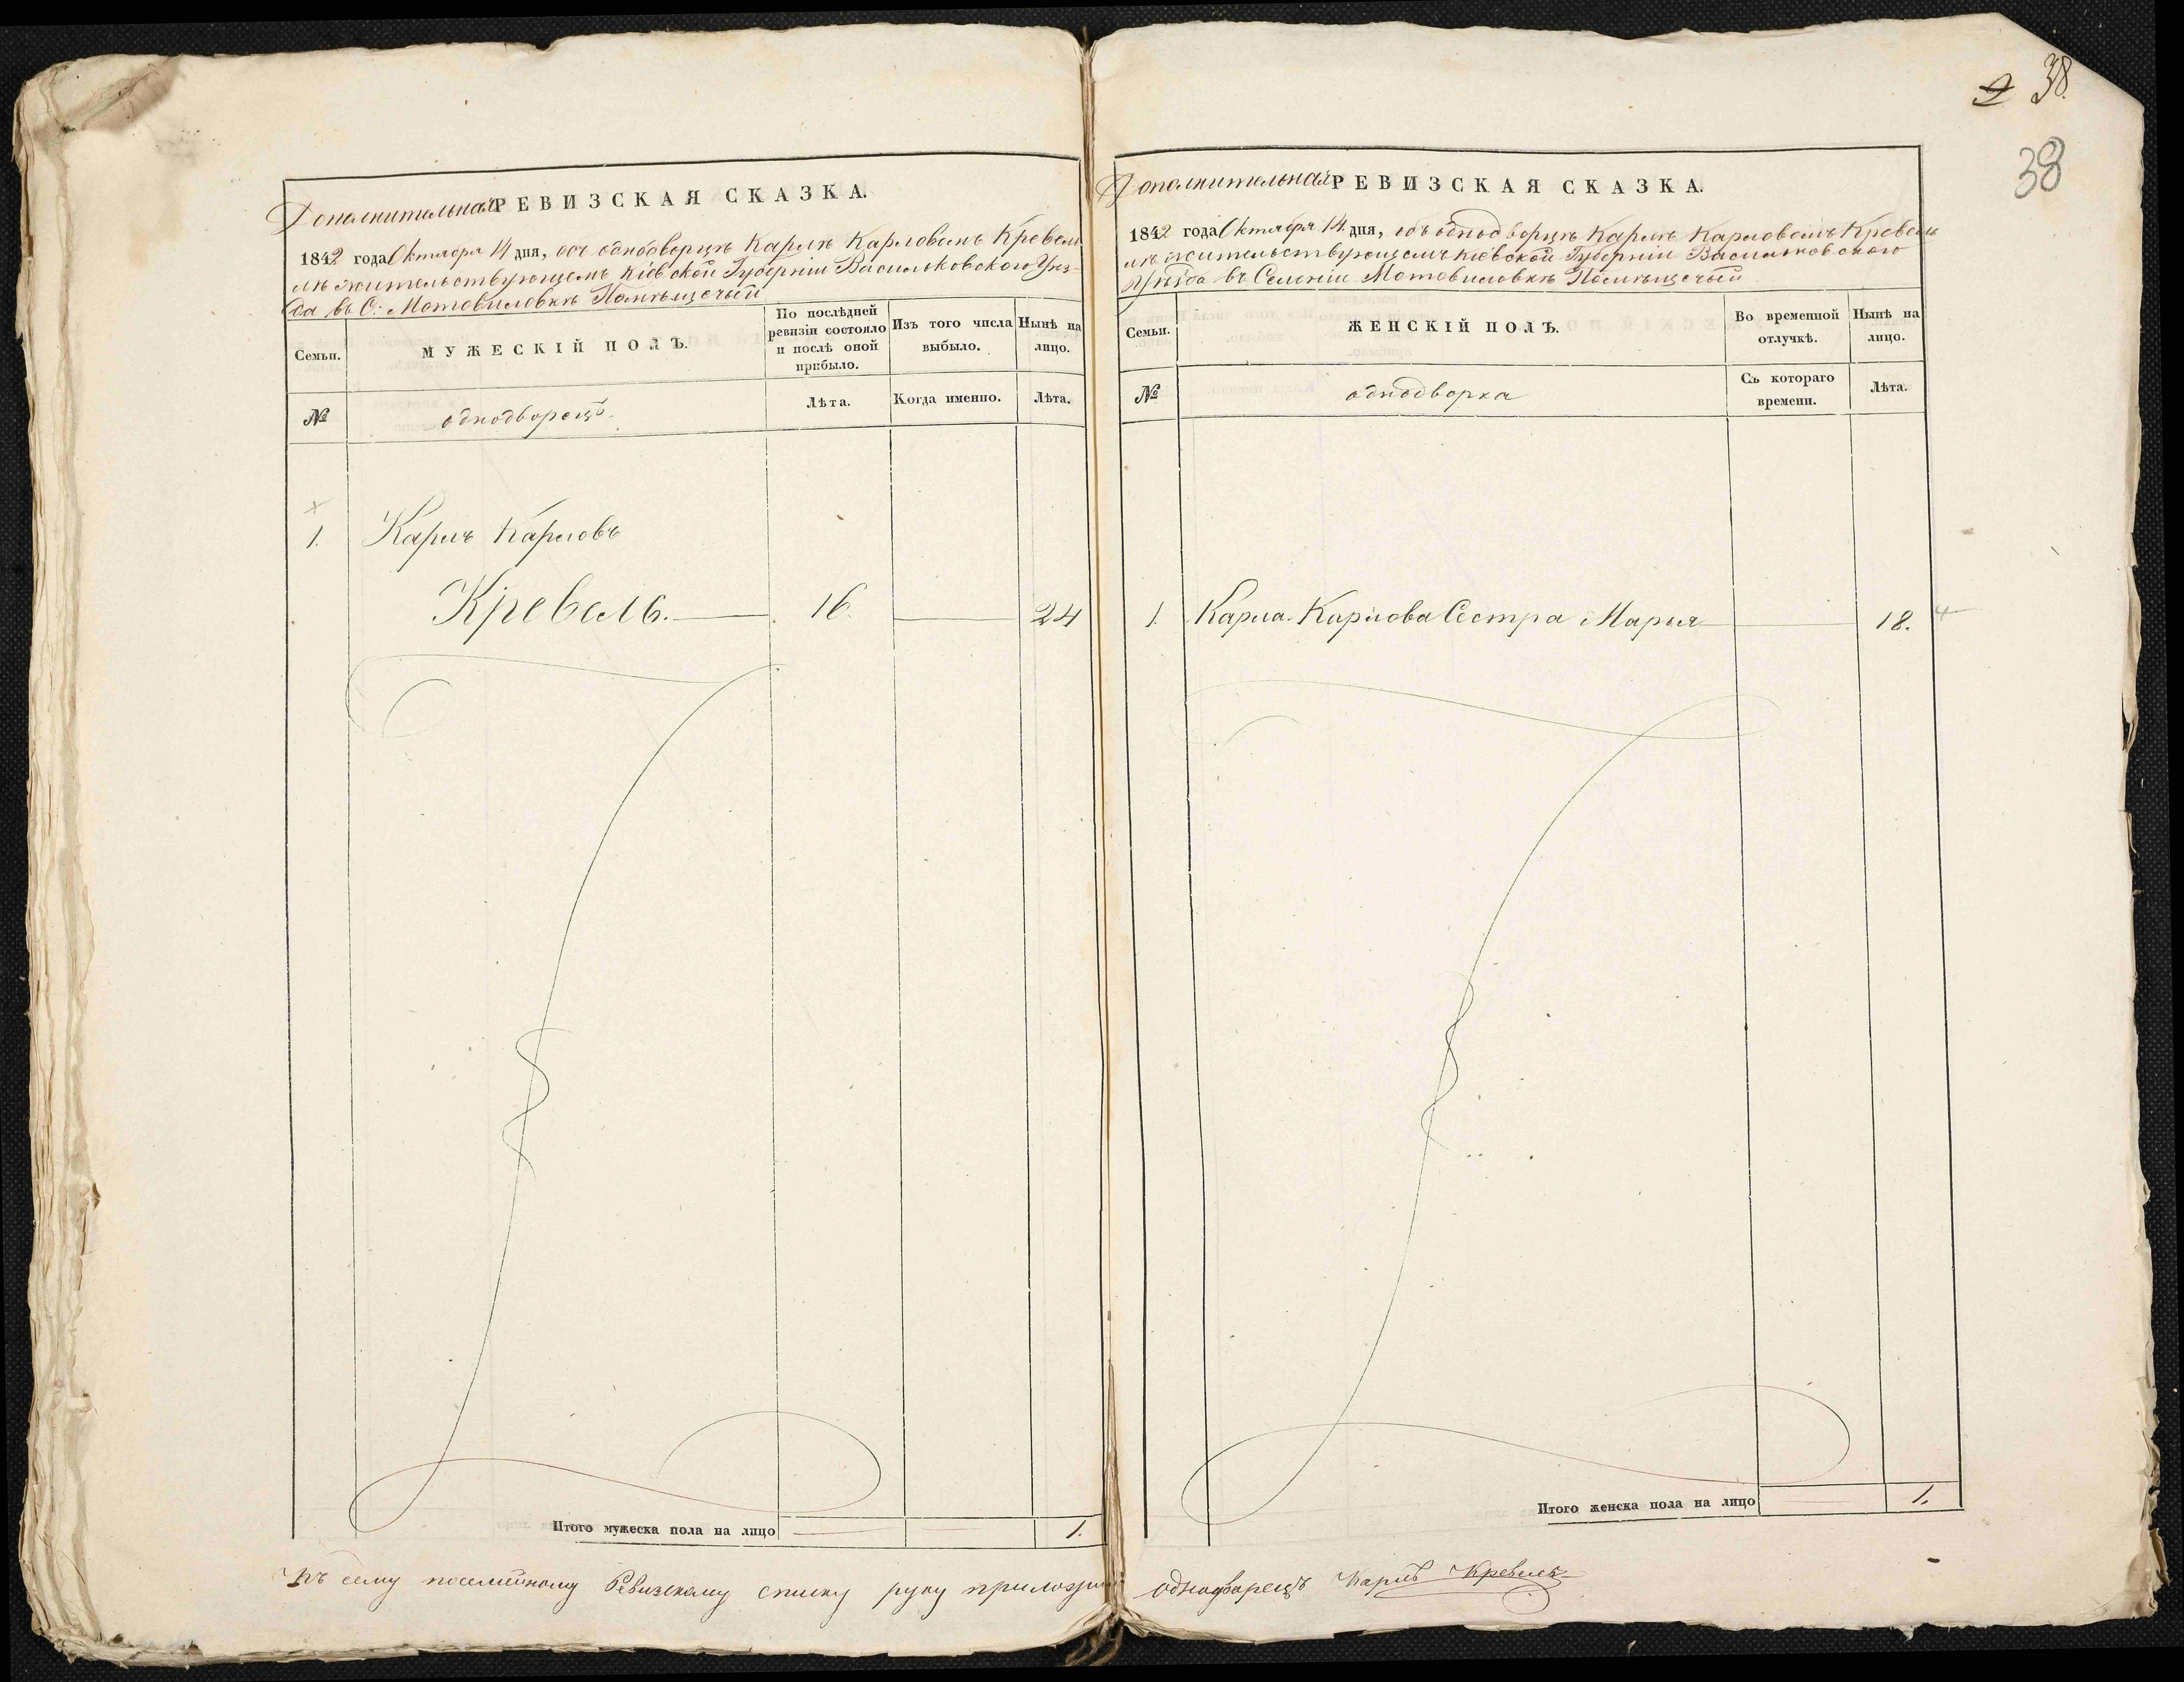 Дополнительная РЕВИЗСКАЯ СКАЗКА.
1842 года Октября 14 дня, объ однодворцѣ Карлѣ Карловомъ Кревел
лѣ жительствующемъ Кіевской Губерніи Васильковскаго Уѣз-
да въ С: Мотовиловкѣ Помѣщечьей
Семьи.
МУЖЕСКІЙ ПОЛЪ.
По послѣдней ревизіи состояло и послѣ оной прибыло.
Изъ того числа выбыло.
Нынѣ на лицо.
№
однодворецъ.
Лѣта.
Когда именно.
Лѣта.
1. Карлъ Карловъ
Кревель. 16. 24
Итого мужеска пола на лицо 1.
Къ сему посемейному Ревизскому списку руку приложилъ
38.
38
Дополнительная РЕВИЗСКАЯ СКАЗКА.
1842 года Октября 14 дня, объ однодворцѣ Карлѣ Карловомъ Кревель
лѣ жительствующемъ Кіевской Губерніи Васильковского
Уѣзда въ Селеніи Мотовиловкѣ Помѣщечьей
Семьи.
ЖЕНСКІЙ ПОЛЪ.
Во временной отлучкѣ.
Нынѣ на лицо.
№
однодворка
Съ котораго времени.
Лѣта.
1. Карла Карлова Сестра Марья 18.
Итого женска пола на лицо 1.
однодворецъ Карлъ Кревель